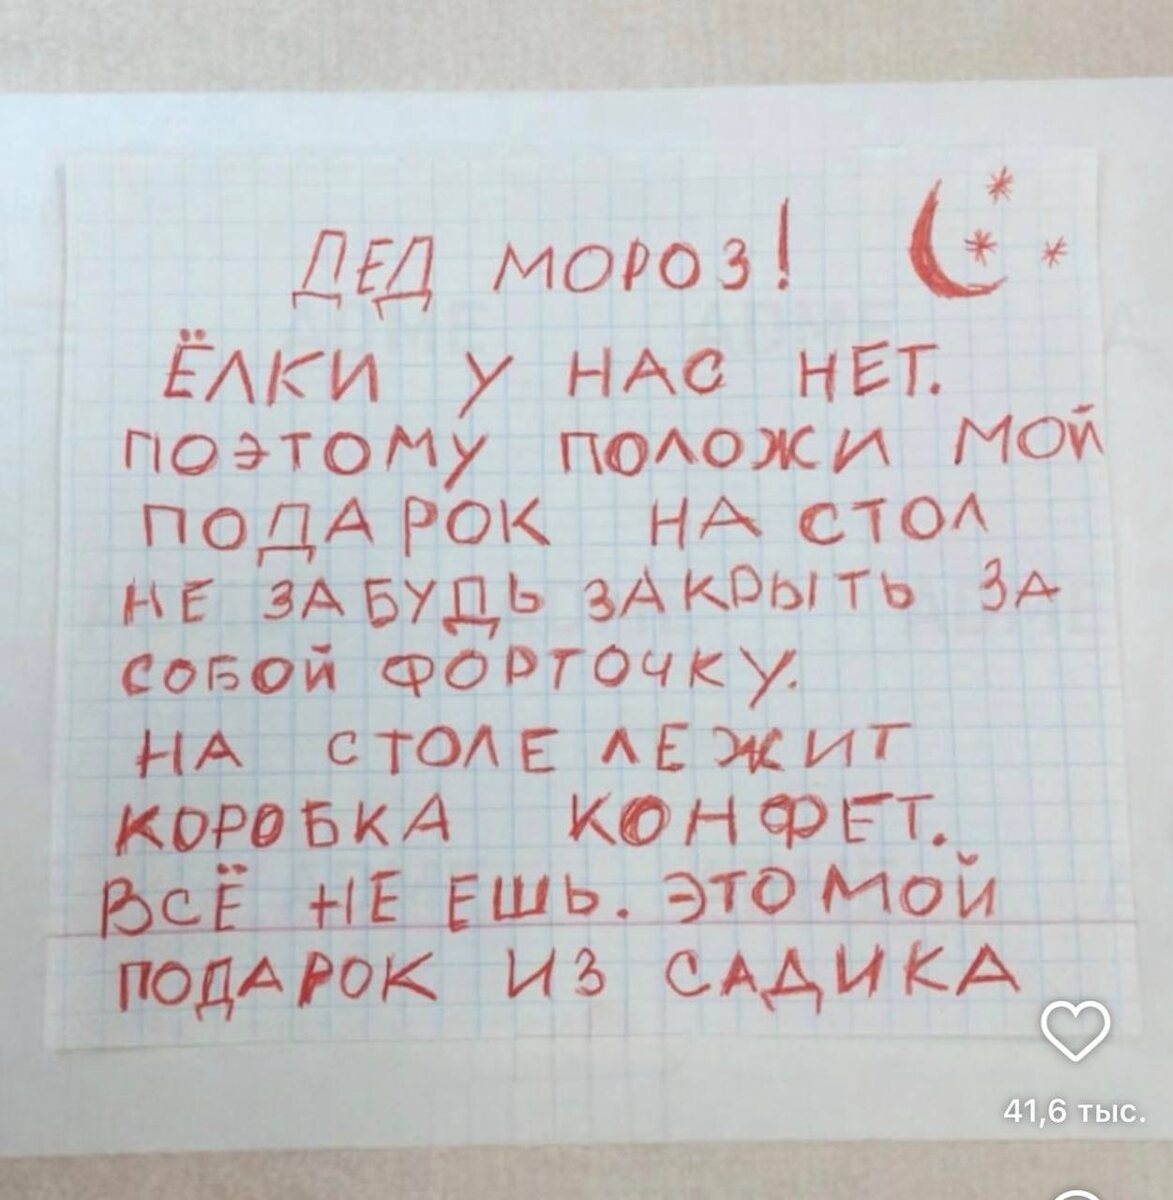 ДЕД МОРОЗ!
ЁЛКИ У НАС НЕТ.
ПОЭТОМУ ПОЛОЖИ МОЙ
ПОДАРОК НА СТОЛ
НЕ ЗАБУДЬ ЗАКРЫТЬ ЗА
СОБОЙ ФОРТОЧКУ.
НА СТОЛЕ ЛЕЖИТ
КОРОБКА КОНФЕТ.
ВСЁ НЕ ЕШЬ. ЭТО МОЙ
ПОДАРОК ИЗ САДИКА
41,6 тыс.